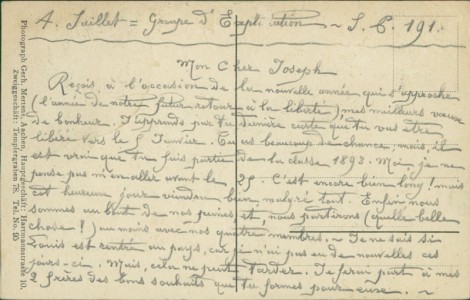 4. Juillet = Groupe d'Exploitation ~ S. P. 191.
Mon Cher Joseph
Reçois, à l'occasion de la nouvelle année qui s'approche
(l'année de notre futur retour à la liberté) mes meilleurs vœux
de bonheur. J'apprends par ta dernière carte que tu vas être
libéré vers le 5 Janvier. Tu as beaucoup de chance, mais, il
est vrai que tu fais partie de la classe 1893. Moi je ne
pense pas m'en aller avant le 25. C'est encore bien long! mais
cet heureux jour viendra bien malgré tout. Enfin nous
sommes au bout de nos peines et, nous partirons (quelle belle
chose!) au moins avec nos quatre membres. ~ Je ne sais si
Louis est rentré au pays, car je n'ai pas eu de nouvelles ces
jours-ci. Mais, cela ne peut tarder. Je ferai part à mes
2 frères des bons souhaits que tu formes pour eux. ~
Photograph Gerh. Mertens, Aachen, Hauptgeschäft: Hartmannstrasse 10,
Zweiggeschäft: Templergraben 78. Tel. No.